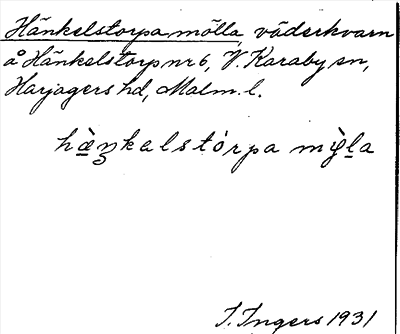 Hänkelstorpa mölla, väderkvarn
å Hänkelstorp nr 6, V. Karaby sn,
Harjagers hd, Malm. l.
hæ̀ŋkalstórpa mỳla
I. Ingers 1931